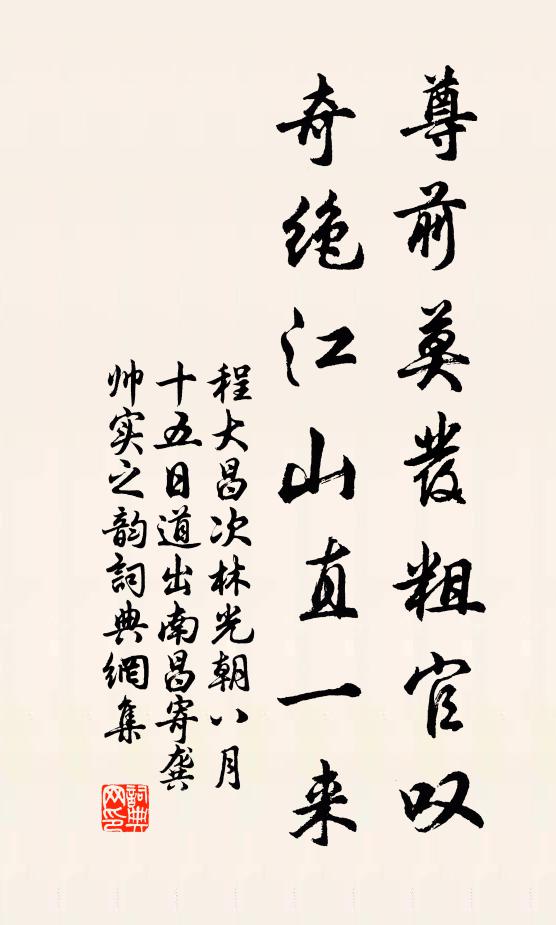 尊前莫發粗官叹
奇絶江山直一来
程大昌次林光朝八月
十五日道出南昌寄龚
帅实之韵詞典網集
詞典网印